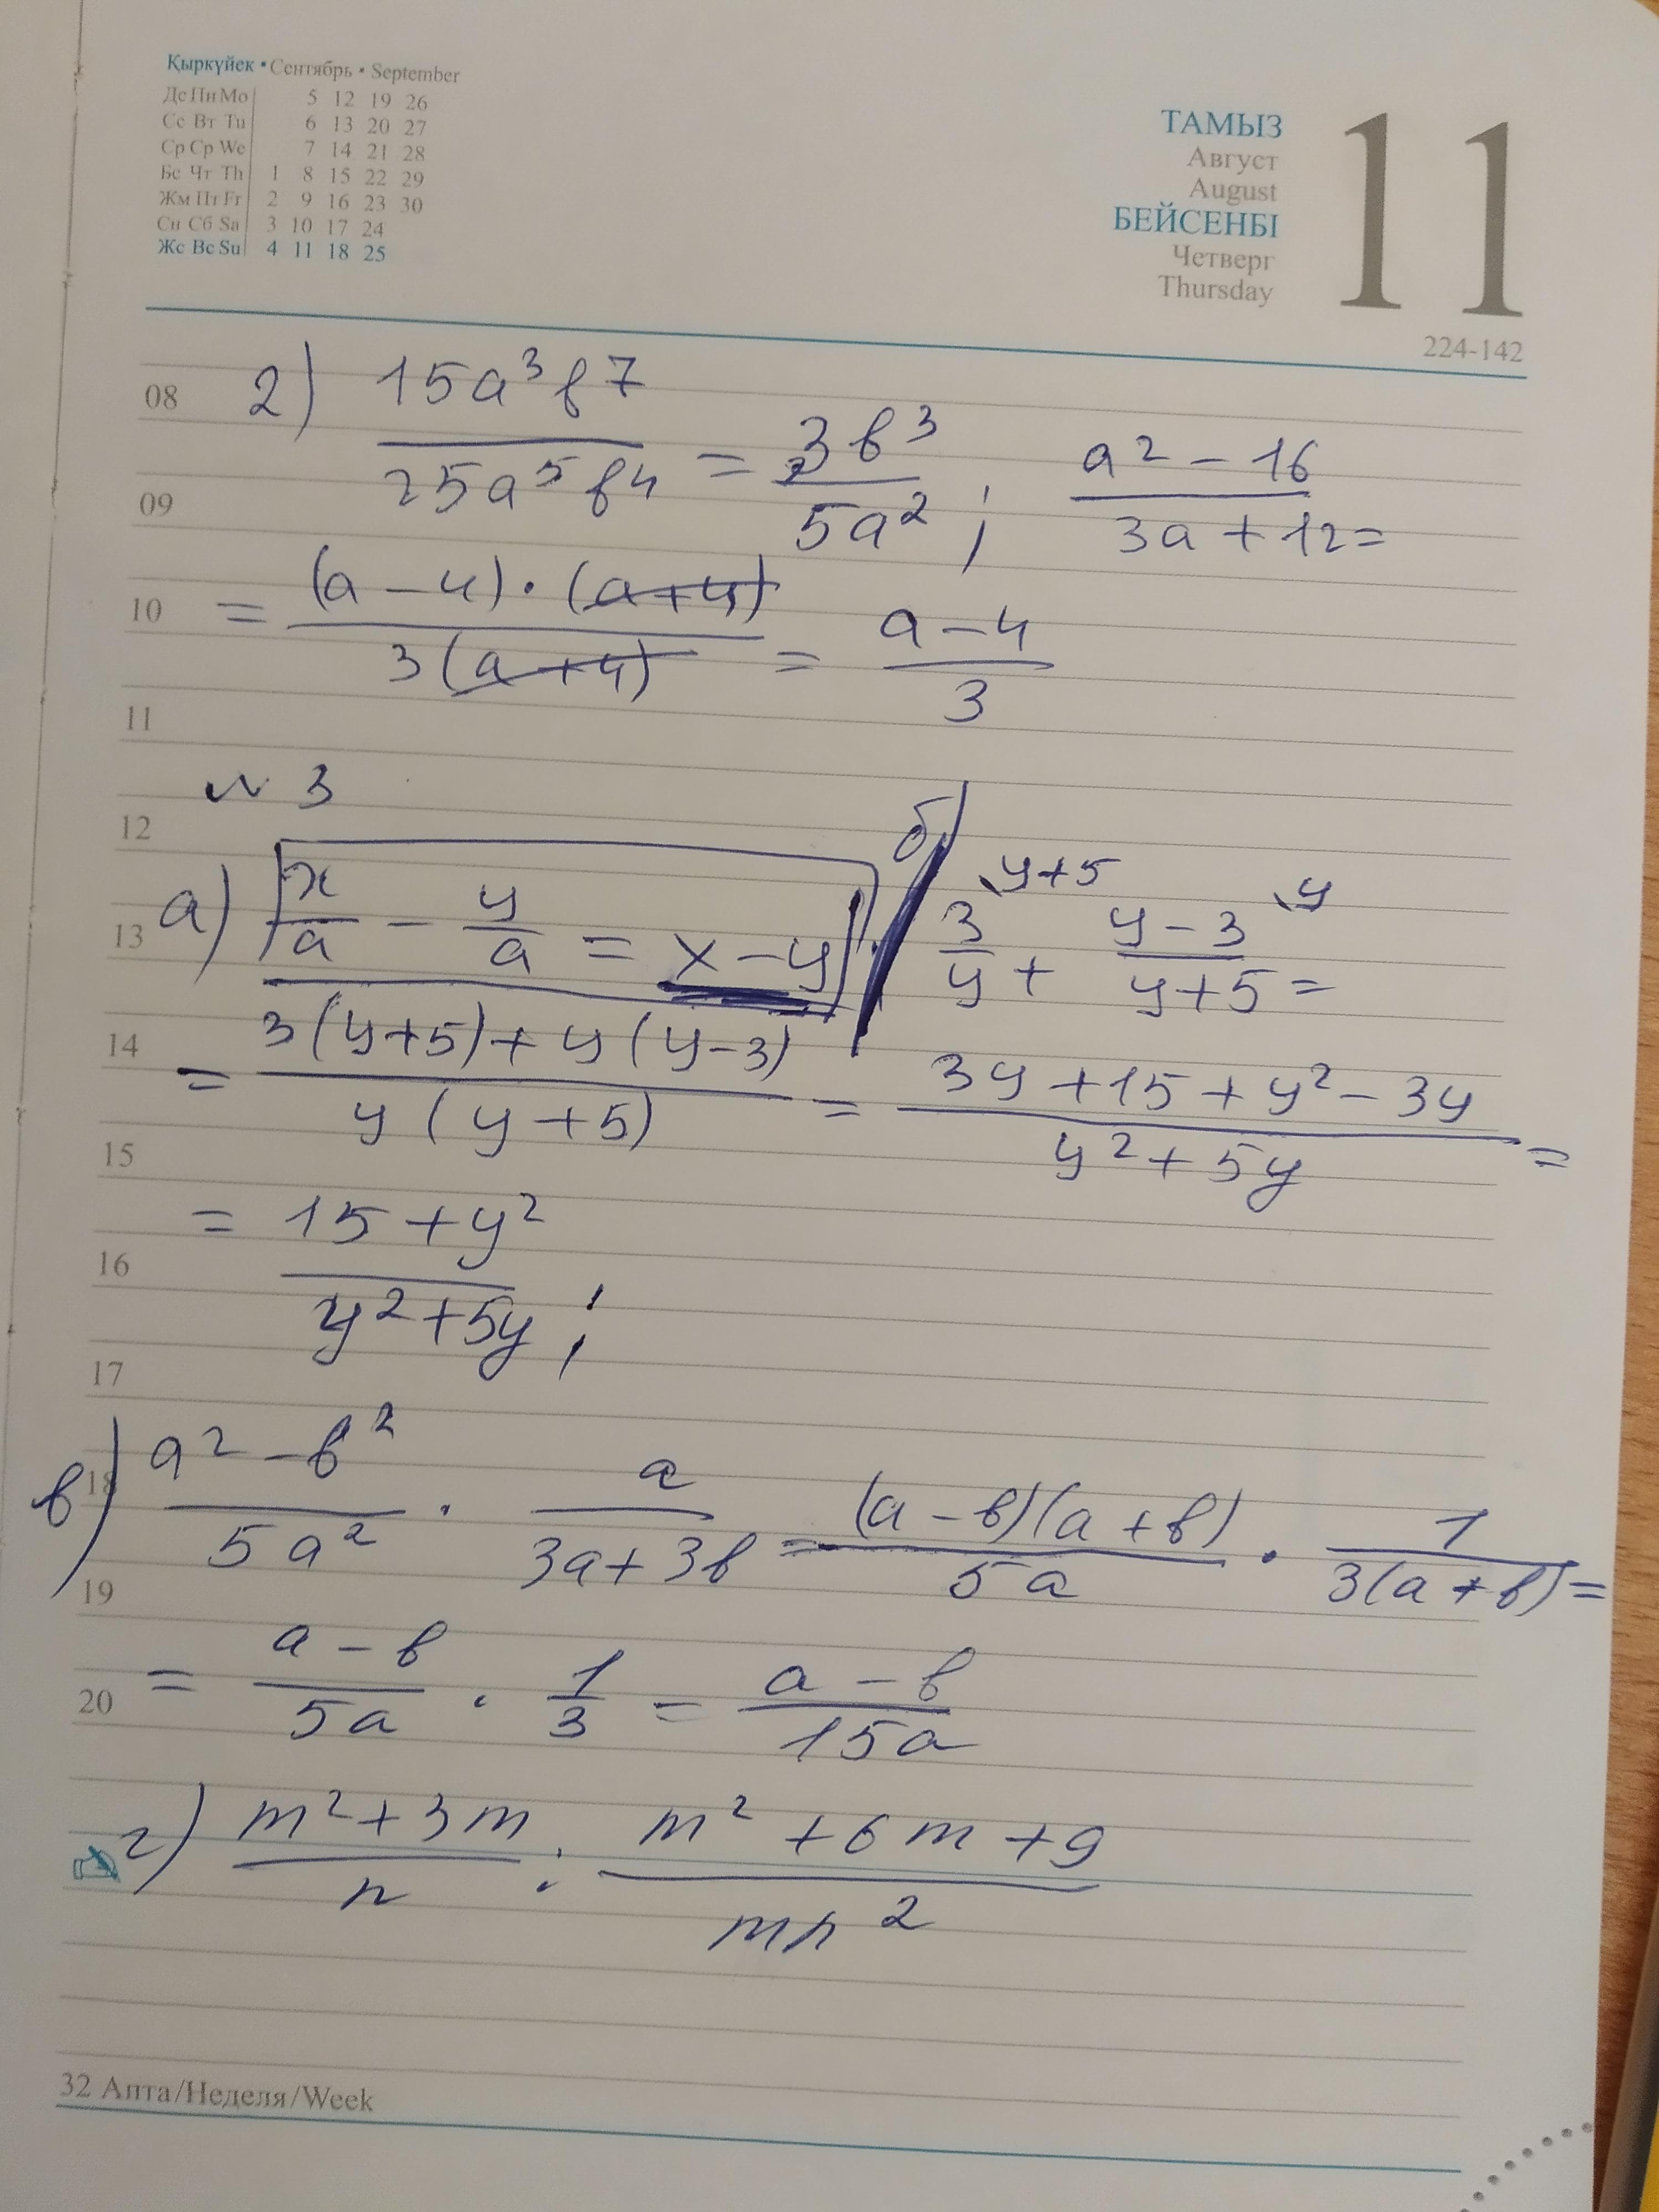 Қыркүйек • Сентябрь • September
Дс Пн Mo 5 12 19 26
Сс Вт Tu 6 13 20 27
Ср Ср We 7 14 21 28
Бс Чт Th 1 8 15 22 29
Жм Пт Fr 2 9 16 23 30
Сн Сб Sa 3 10 17 24
Жс Вс Su 4 11 18 25
ТАМЫЗ
Август
August
БЕЙСЕНБІ
Четверг
Thursday
11
224-142
08
2) 15a³b⁷ / 25a⁵b⁴ = 3b³ / 5a² ; a² - 16 / 3a + 12 =
09
10
= (a - 4) · (a+4) / 3(a+4) = a - 4 / 3
11
№ 3
12
а) x/a - y/a = x - y б) 3/y \y+5 + y - 3 / y + 5 \y =
13
14
= 3(y+5) + y(y-3) / y(y+5) = 3y + 15 + y² - 3y / y² + 5y =
15
= 15 + y² / y² + 5y ;
16
17
18
в) a² - b² / 5a² · a / 3a + 3b = (a - b)(a + b) / 5a · 1 / 3(a + b) =
19
= a - b / 5a · 1/3 = a - b / 15a
20
г) m² + 3m / n : m² + 6m + 9 / mn²
32 Апта/Неделя/Week